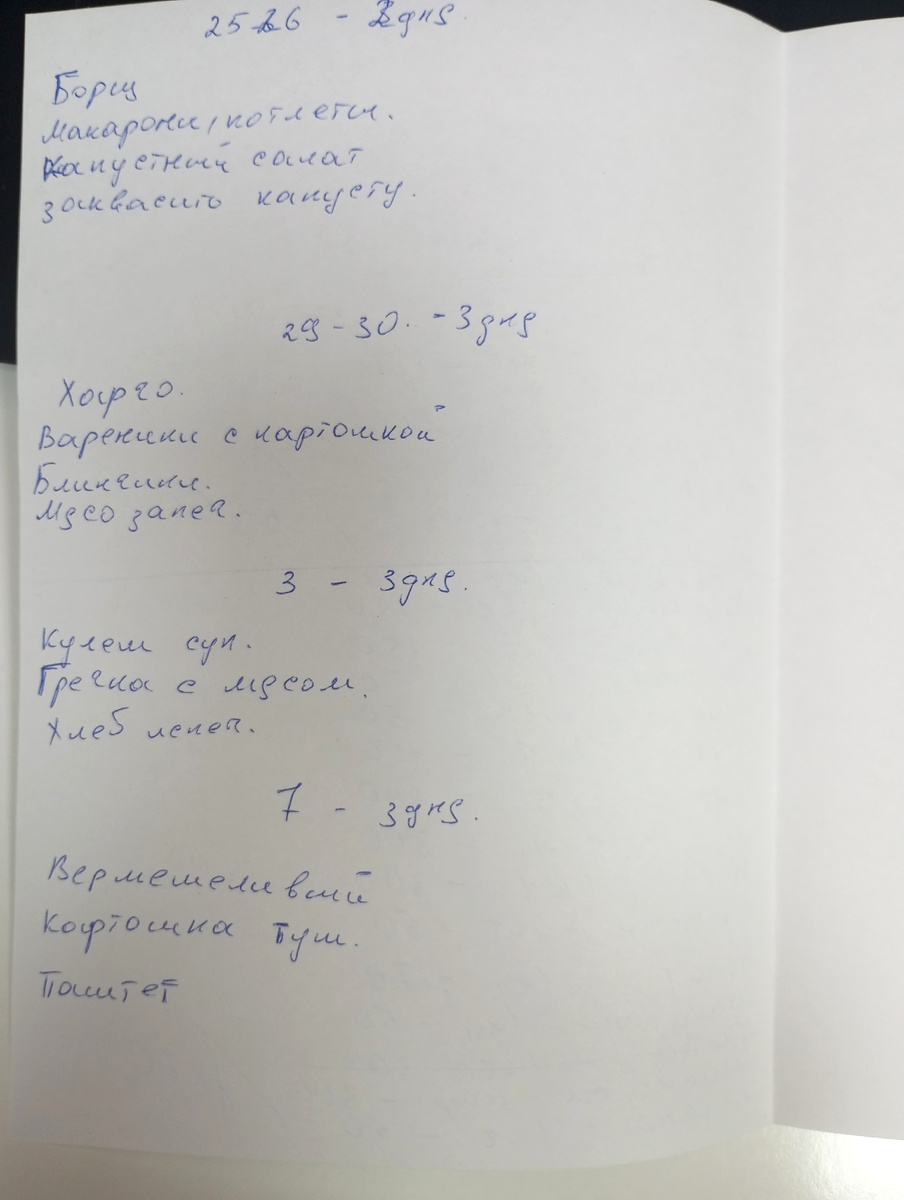 25-26 - 2дня
Борщ
Макарони, котлеты.
Капустный салат
заквасить капусту.
29-30. - 3дня
Харчо.
Вареники с картошкой
Блинчики.
Мясо запеч.
3 - 3дня.
Кулеш суп.
Гречка с мясом.
Хлеб испеч.
7 - 3дня.
Вермешеливый
Картошка туш.
Паштет